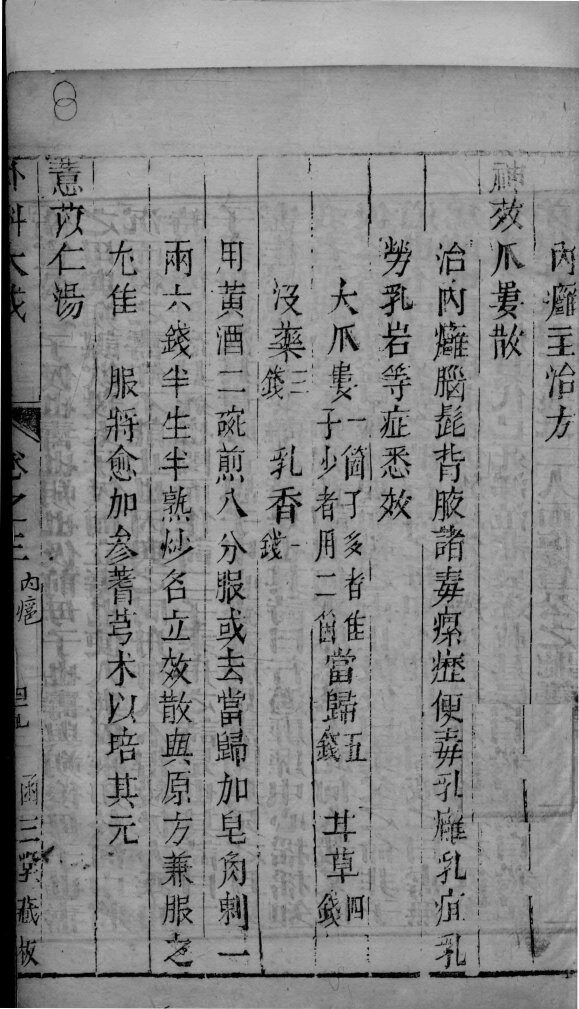 內癰主治方
神效瓜蔞散
治內癰腦髭背腋諸毒瘰癧便毒乳癰乳疽乳
勞乳岩等症悉效
大瓜蔞一箇子多者佳子少者用二箇當歸五錢甘草四錢
沒藥三錢乳香一錢
用黃酒二碗煎八分服或去當歸加皂角刺一
兩六錢半生半熟炒名立效散與原方兼服之
尤佳 服將愈加參蓍芎术以培其元
薏苡仁湯
外科大成 卷之三 內癰 四九